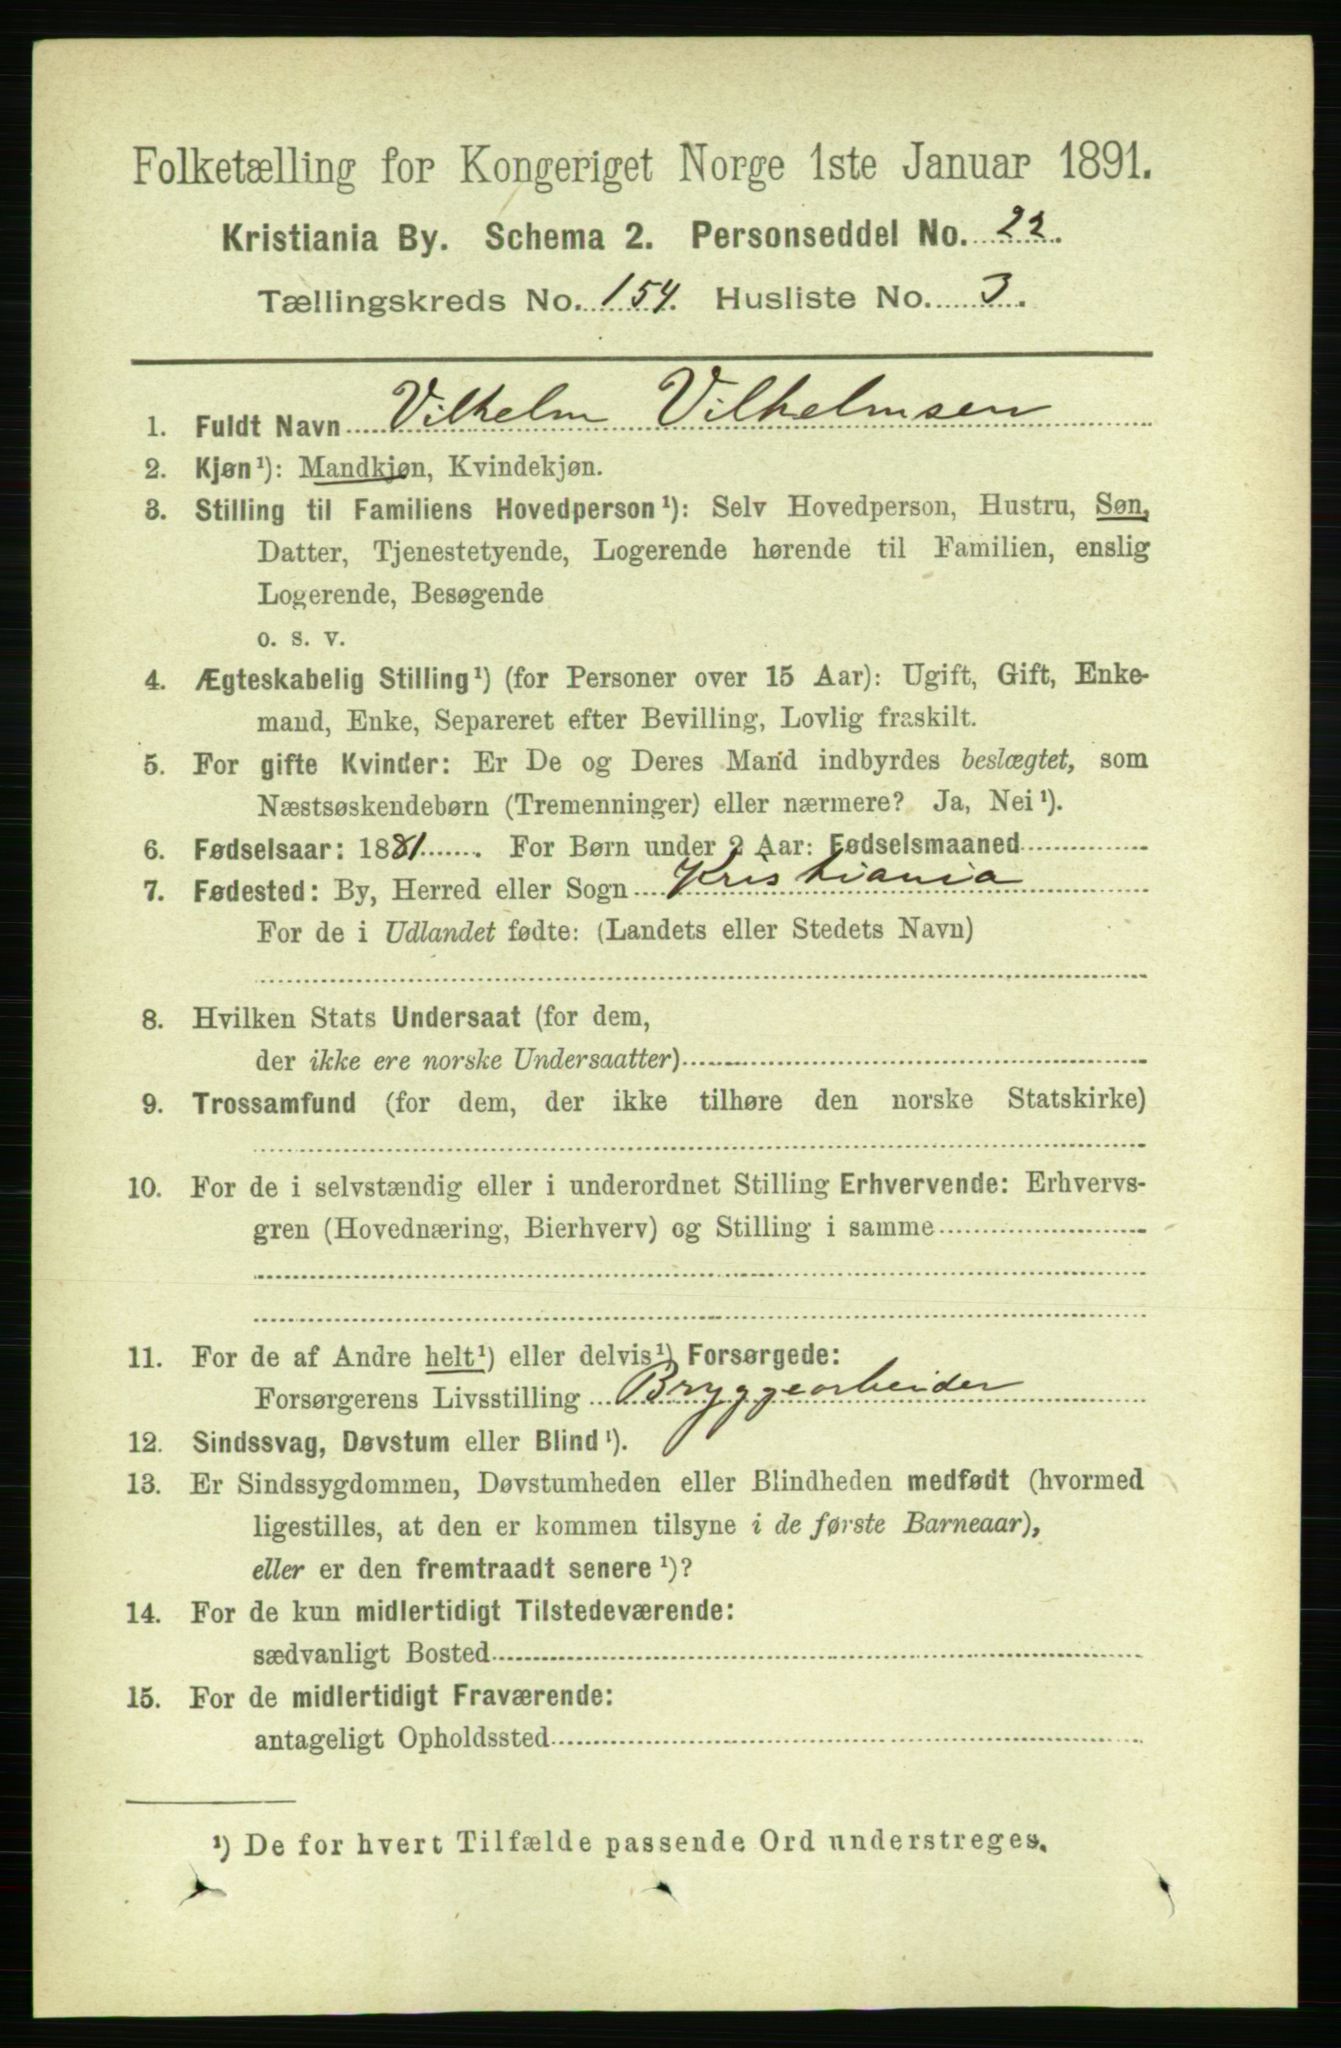 Folketælling for Kongeriget Norge 1ste Januar 1891.
Kristiania By. Schema 2. Personseddel No. 22.
Tællingskreds No. 154. Husliste No. 3.
1. Fuldt Navn Vilhelm Vilhelmsen
2. Kjøn¹): Mandkjøn, Kvindekjøn.
3. Stilling til Familiens Hovedperson¹): Selv Hovedperson, Hustru, Søn,
Datter, Tjenestetyende, Logerende hørende til Familien, enslig
Logerende, Besøgende
o. s. v.
4. Ægteskabelig Stilling¹) (for Personer over 15 Aar): Ugift, Gift, Enke-
mand, Enke, Separeret efter Bevilling, Lovlig fraskilt.
5. For gifte Kvinder: Er De og Deres Mand indbyrdes beslægtet, som
Næstsøskendebørn (Tremenninger) eller nærmere? Ja, Nei¹).
6. Fødselsaar: 1881. For Børn under 2 Aar: Fødselsmaaned
7. Fødested: By, Herred eller Sogn Kristiania
For de i Udlandet fødte: (Landets eller Stedets Navn)
8. Hvilken Stats Undersaat (for dem,
der ikke ere norske Undersaatter)
9. Trossamfund (for dem, der ikke tilhøre den norske Statskirke)
10. For de i selvstændig eller i underordnet Stilling Erhvervende: Erhvervs-
gren (Hovednæring, Bierhverv) og Stilling i samme
11. For de af Andre helt¹) eller delvis¹) Forsørgede:
Forsørgerens Livsstilling Bryggearbeider
12. Sindssvag, Døvstum eller Blind¹).
13. Er Sindssygdommen, Døvstumheden eller Blindheden medfødt (hvormed
ligestilles, at den er kommen tilsyne i de første Barneaar),
eller er den fremtraadt senere¹)?
14. For de kun midlertidigt Tilstedeværende:
sædvanligt Bosted
15. For de midlertidigt Fraværende:
antageligt Opholdssted
¹) De for hvert Tilfælde passende Ord understreges.